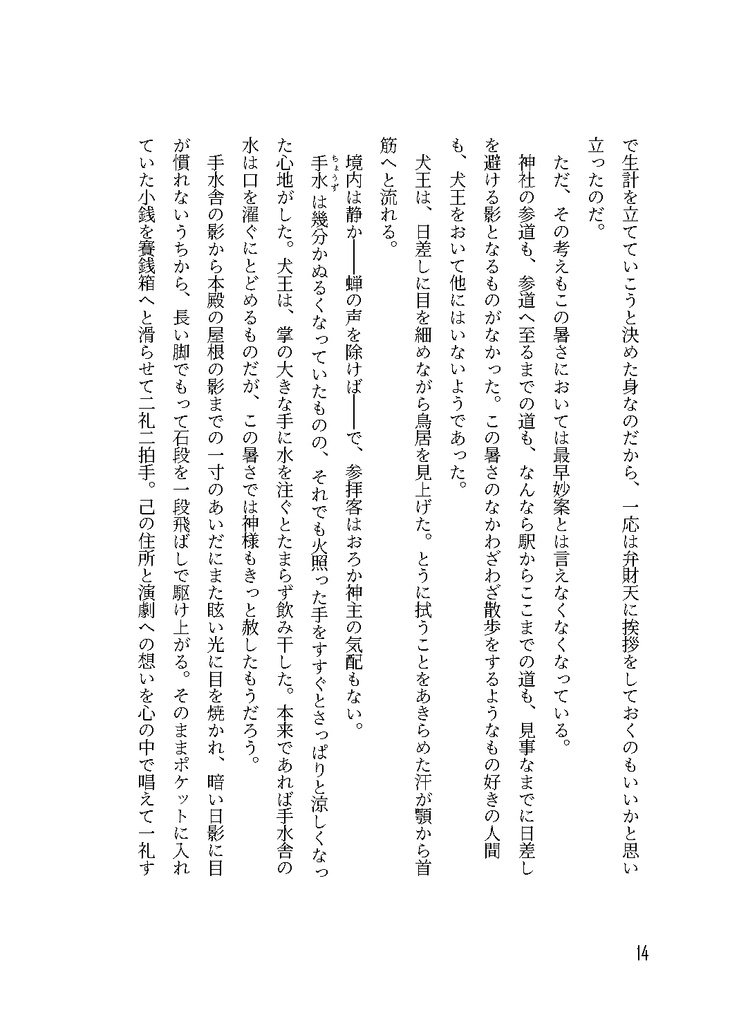 で生計を立てていこうと決めた身なのだから、一応は弁財天に挨拶をしておくのもいいかと思い
立ったのだ。
ただ、その考えもこの暑さにおいては最早妙案とは言えなくなくなっている。
神社の参道も、参道へ至るまでの道も、なんなら駅からここまでの道も、見事なまでに日差し
を避ける影となるものがなかった。この暑さのなかわざわざ散歩をするようなもの好きの人間
も、犬王をおいて他にはいないようであった。
犬王は、日差しに目を細めながら鳥居を見上げた。とうに拭うことをあきらめた汗が顎から首
筋へと流れる。
境内は静か――蝉の声を除けば――で、参拝客はおろか神主の気配もない。
手水ちょうずは幾分かぬるくなっていたものの、それでも火照った手をすすぐとさっぱりと涼しくなっ
た心地がした。犬王は、掌の大きな手に水を注ぐとたまらず飲み干した。本来であれば手水舎の
水は口を濯ぐにとどめるものだが、この暑さでは神様もきっと赦したもうだろう。
手水舎の影から本殿の屋根の影までの一寸のあいだにまた眩い光に目を焼かれ、暗い日影に目
が慣れないうちから、長い脚でもって石段を一段飛ばしで駆け上がる。そのままポケットに入れ
ていた小銭を賽銭箱へと滑らせて二礼二拍手。己の住所と演劇への想いを心の中で唱えて一礼す
14